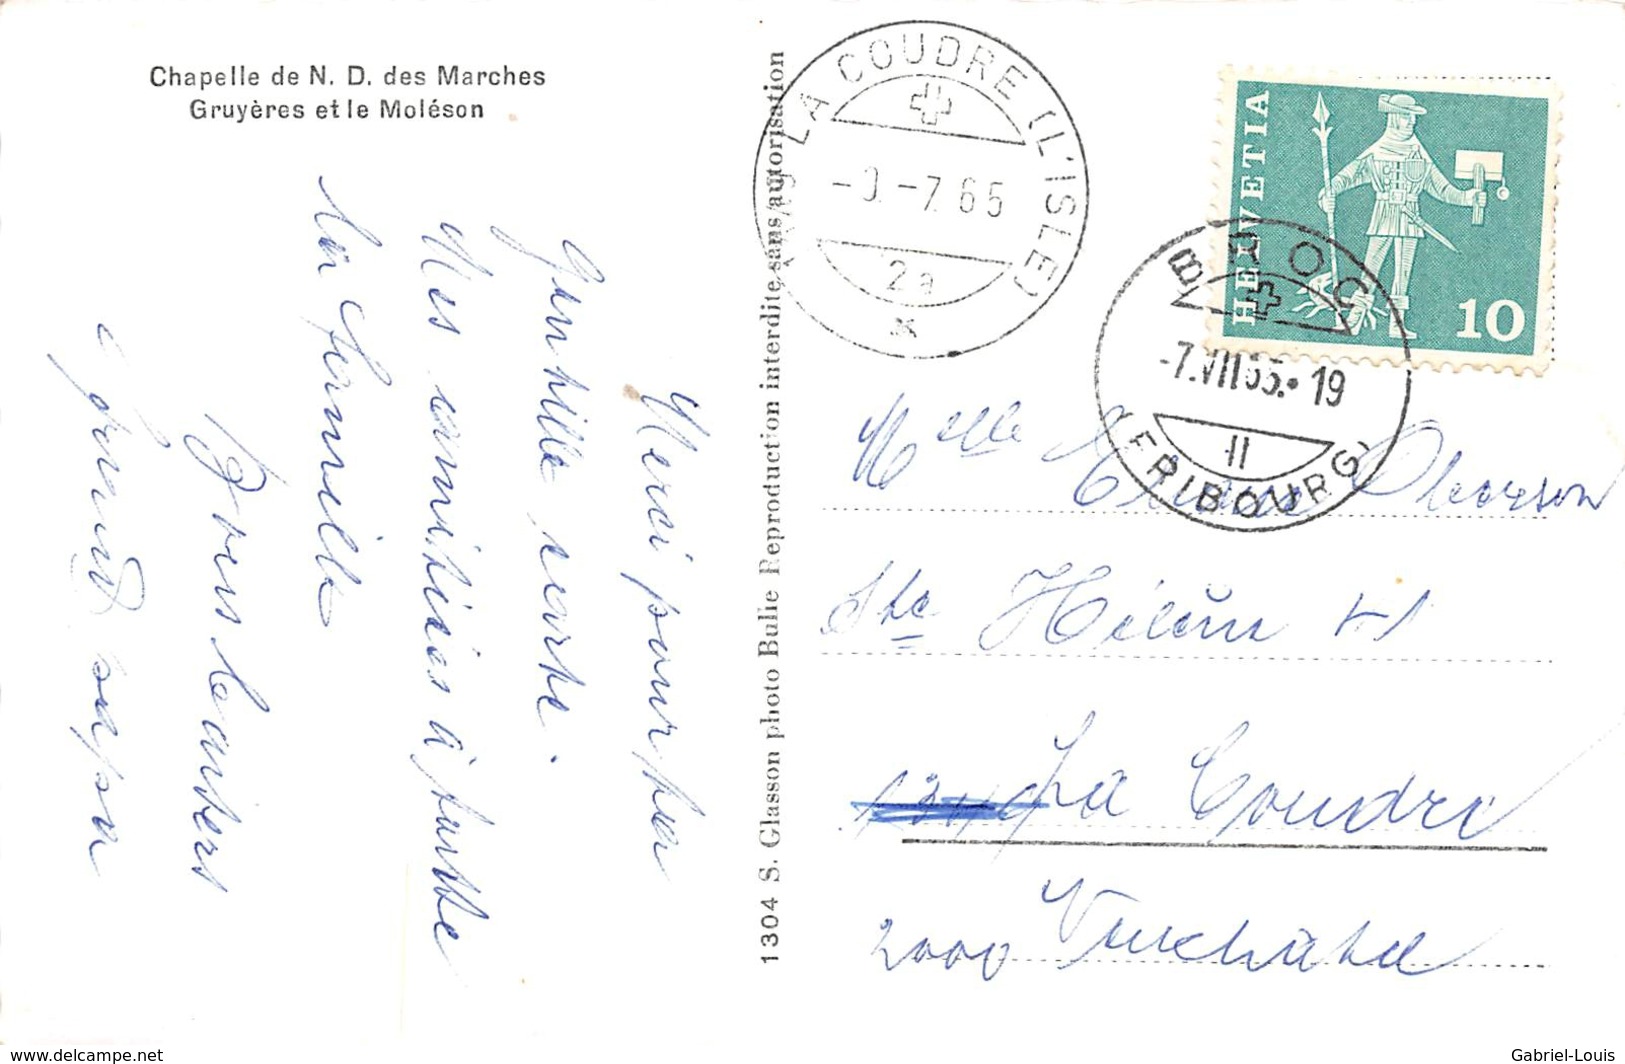 Chapelle de N. D. des Marches
Gruyères et le Moléson
Merci pour ta
gentille carte.
Mes amitiées à toutte
la famille
Bons baisers
1304 S. Glasson photo Bulle Reproduction interdite sans autorisation
LA COUDRE (L'ISLE)
-7.65
2a
BROC
-7.VII65.•19
II
(FRIBOURG)
HELVETIA
10
Melle Oberson
Ste Hélène 41
La Coudre
2000 Neuchâtel
www.delcampe.net
Gabriel-Louis